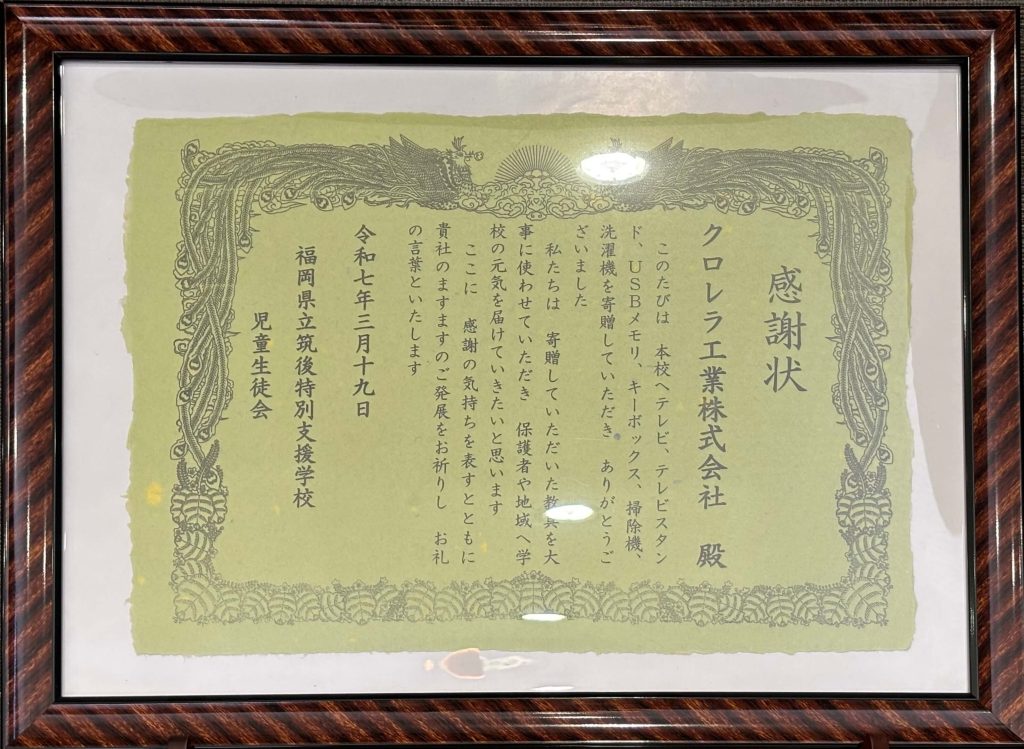 感謝状
クロレラ工業株式会社 殿
このたびは 本校へテレビ、テレビスタン
ド、USBメモリ、キーボックス、掃除機、
洗濯機を寄贈していただき ありがとうご
ざいました
私たちは 寄贈していただいた教具を大
事に使わせていただき 保護者や地域へ学
校の元気を届けていきたいと思います
ここに 感謝の気持ちを表すとともに
貴社のますますのご発展をお祈りし お礼
の言葉といたします
令和七年三月十九日
福岡県立筑後特別支援学校
児童生徒会